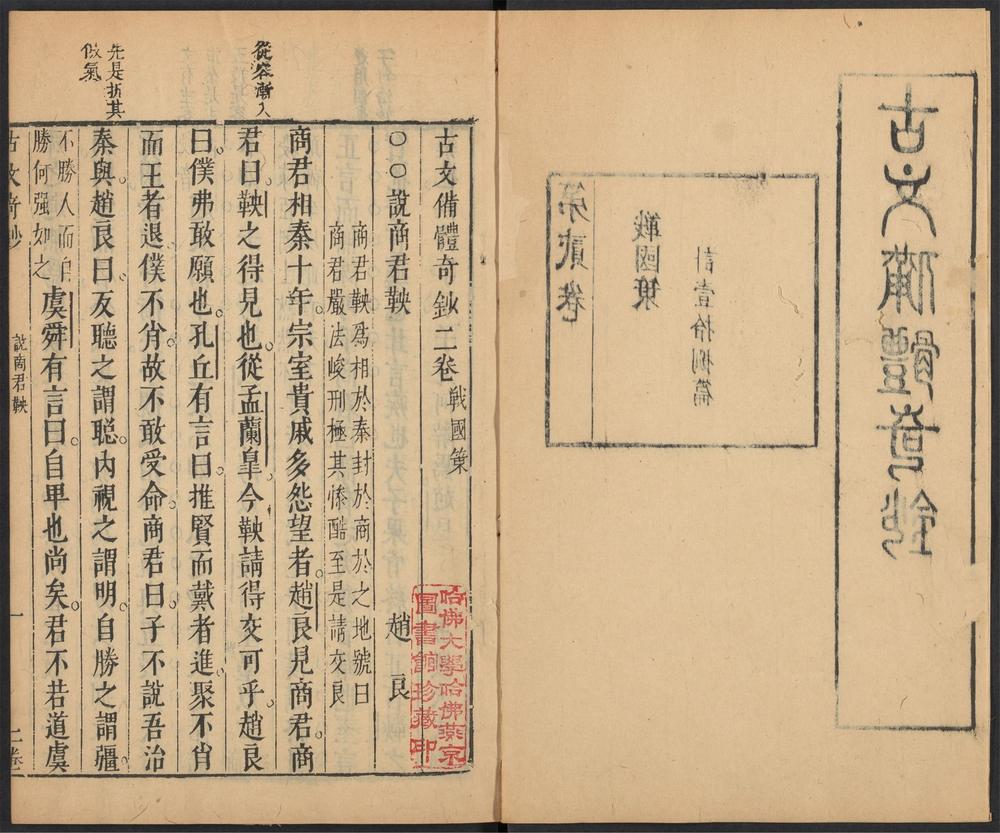 古文備體奇鈔
計壹拾捌篇
戰國策
第貳卷
古文備體奇鈔二卷 戰國策
○○說商君鞅 趙良
商君鞅爲相於秦封於商於之地號曰
商君嚴法峻刑極其慘酷至是請交良
商君相秦十年宗室貴戚多怨望者趙良見商君商
君曰鞅之得見也從孟蘭臯今鞅請得交可乎趙良
曰僕弗敢願也孔丘有言曰推賢而戴者進聚不肖
而王者退僕不肖故不敢受命商君曰子不說吾治
秦與趙良曰反聽之謂聰内視之謂明自勝之謂彊
不勝人而自
勝何强如之
虞舜有言曰自卑也尚矣君不若道虞
從容漸入
先是折其
傲氣
古文奇鈔
說商君鞅
一
二卷
哈佛大學哈佛燕京
圖書館珍藏印